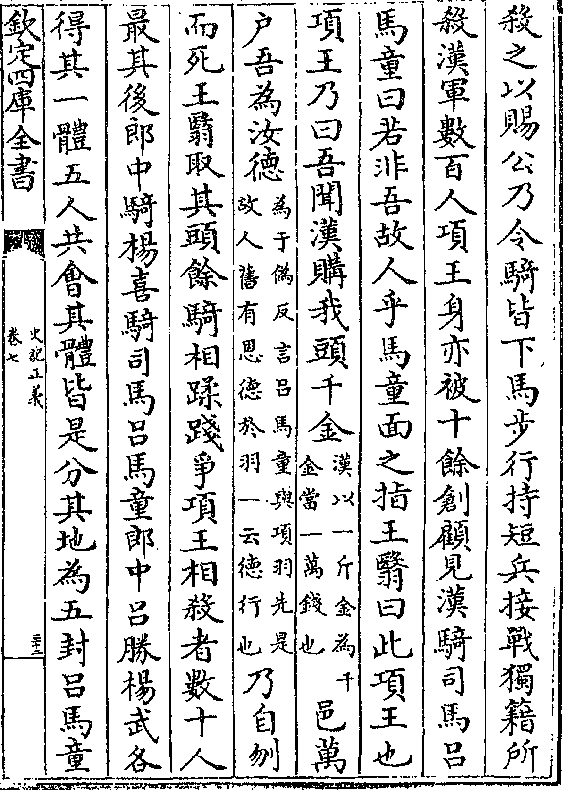 殺之以賜公乃令騎皆下馬步行持短兵接戰獨籍所
殺漢軍數百人項王身亦被十餘創顧見漢騎司馬吕
馬童曰若非吾故人乎馬童面之指王翳曰此項王也
項王乃曰吾聞漢購我頭千金漢以一斤金為千金當一萬錢也邑萬
户吾為汝德為于偽反言吕馬童與項羽先是故人舊有恩德於羽一云德行也乃自刎
而死王翳取其頭餘騎相蹂踐爭項王相殺者數十人
最其後郎中騎楊喜騎司馬吕馬童郎中吕勝楊武各
得其一體五人共會其體皆是分其地為五封吕馬童
欽定四庫全書
史記正義
卷七
三十二